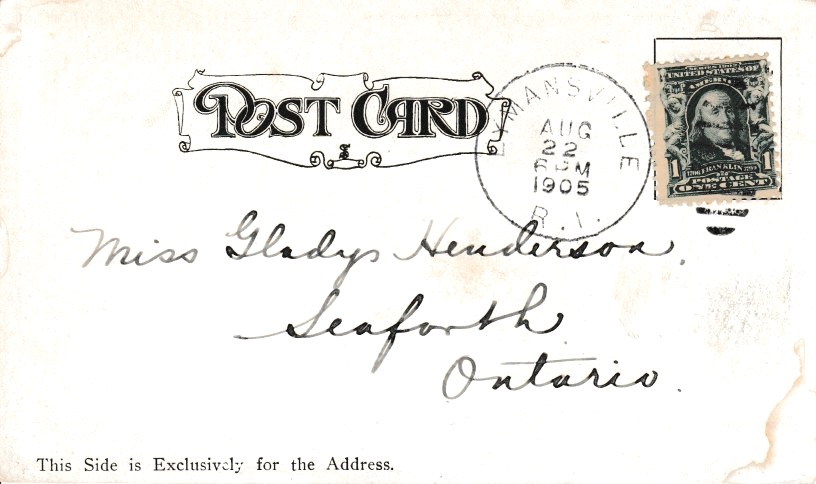 POST CARD
LYMANSVILLE
AUG
22
6 PM
1905
R.I.
SERIES 1902
UNITED STATES OF
AMERICA
1 1706 FRANKLIN 1790 1
POSTAGE
ONE CENT
Miss Gladys Henderson,
Seaforth
Ontario.
This Side is Exclusively for the Address.